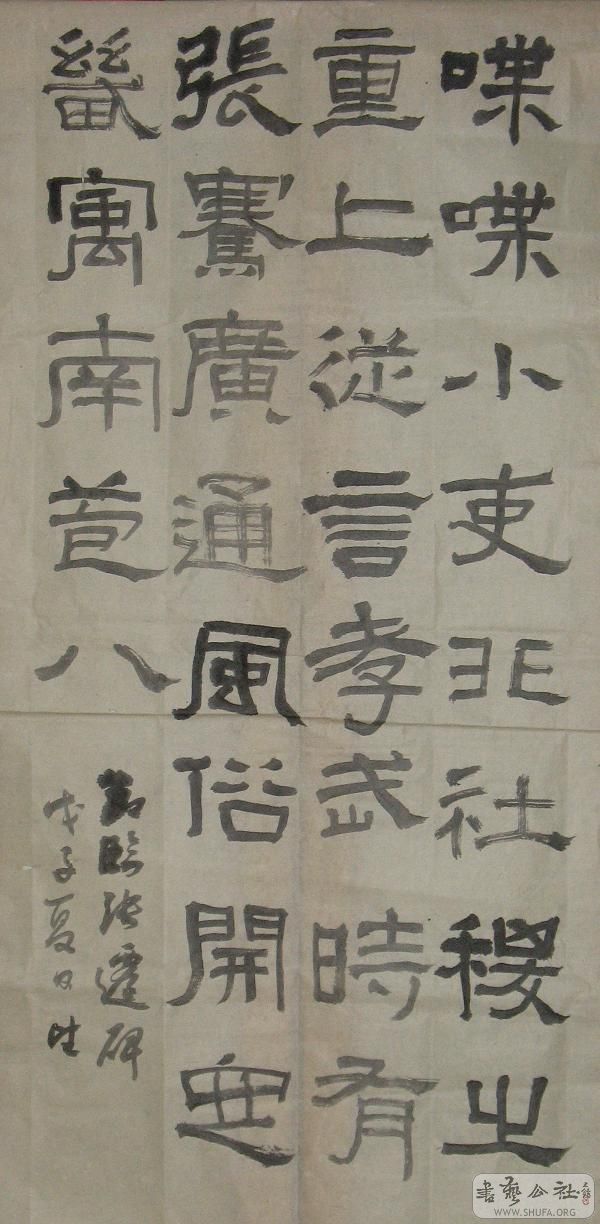 喋喋小吏非社稷之
重上從言孝武時有
張騫廣通風俗開定
畿寓南苞八
節臨張遷碑
戊子夏日
書藝公社
WWW.SHUFA.ORG